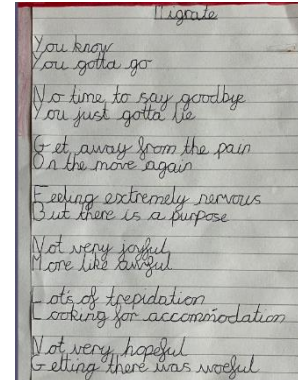 Migrate
You know
You gotta go
No time to say goodbye
You just gotta lie
Get away from the pain
On the move again
Feeling extremely nervous
But there is a purpose
Not very joyful
More like awful
Lots of trepidation
Looking for accommodation
Not very hopeful
Getting there was woeful